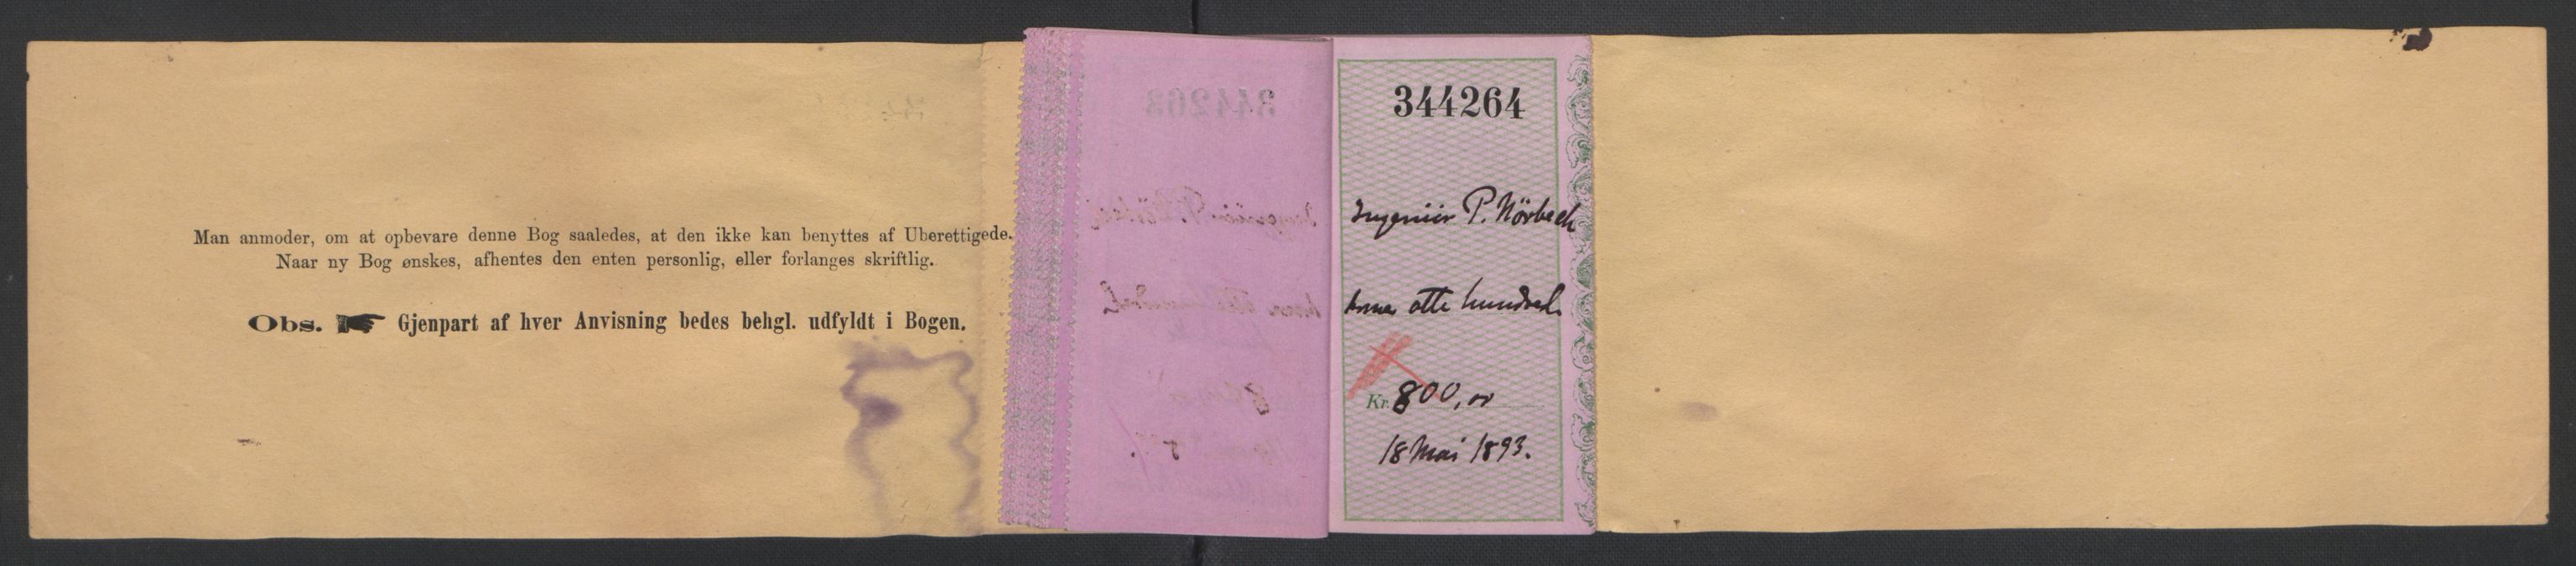 Man anmoder, om at opbevare denne Bog saaledes, at den ikke kan benyttes af Uberettigede.
Naar ny Bog ønskes, afhentes den enten personlig, eller forlanges skriftlig.
Obs. Gjenpart af hver Anvisning bedes behgl. udfyldt i Bogen.
344263
344264
Ingeniör P. Nörbech
otte hundred
Kr. 800,00
18 Mai 1893.